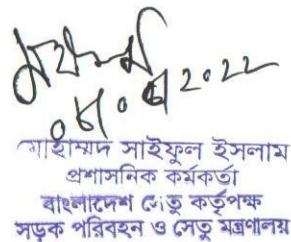 ০৮/০৫/২০২২
মোহাম্মদ সাইফুল ইসলাম
প্রশাসনিক কর্মকর্তা
বাংলাদেশ সেতু কর্তৃপক্ষ
সড়ক পরিবহন ও সেতু মন্ত্রণালয়